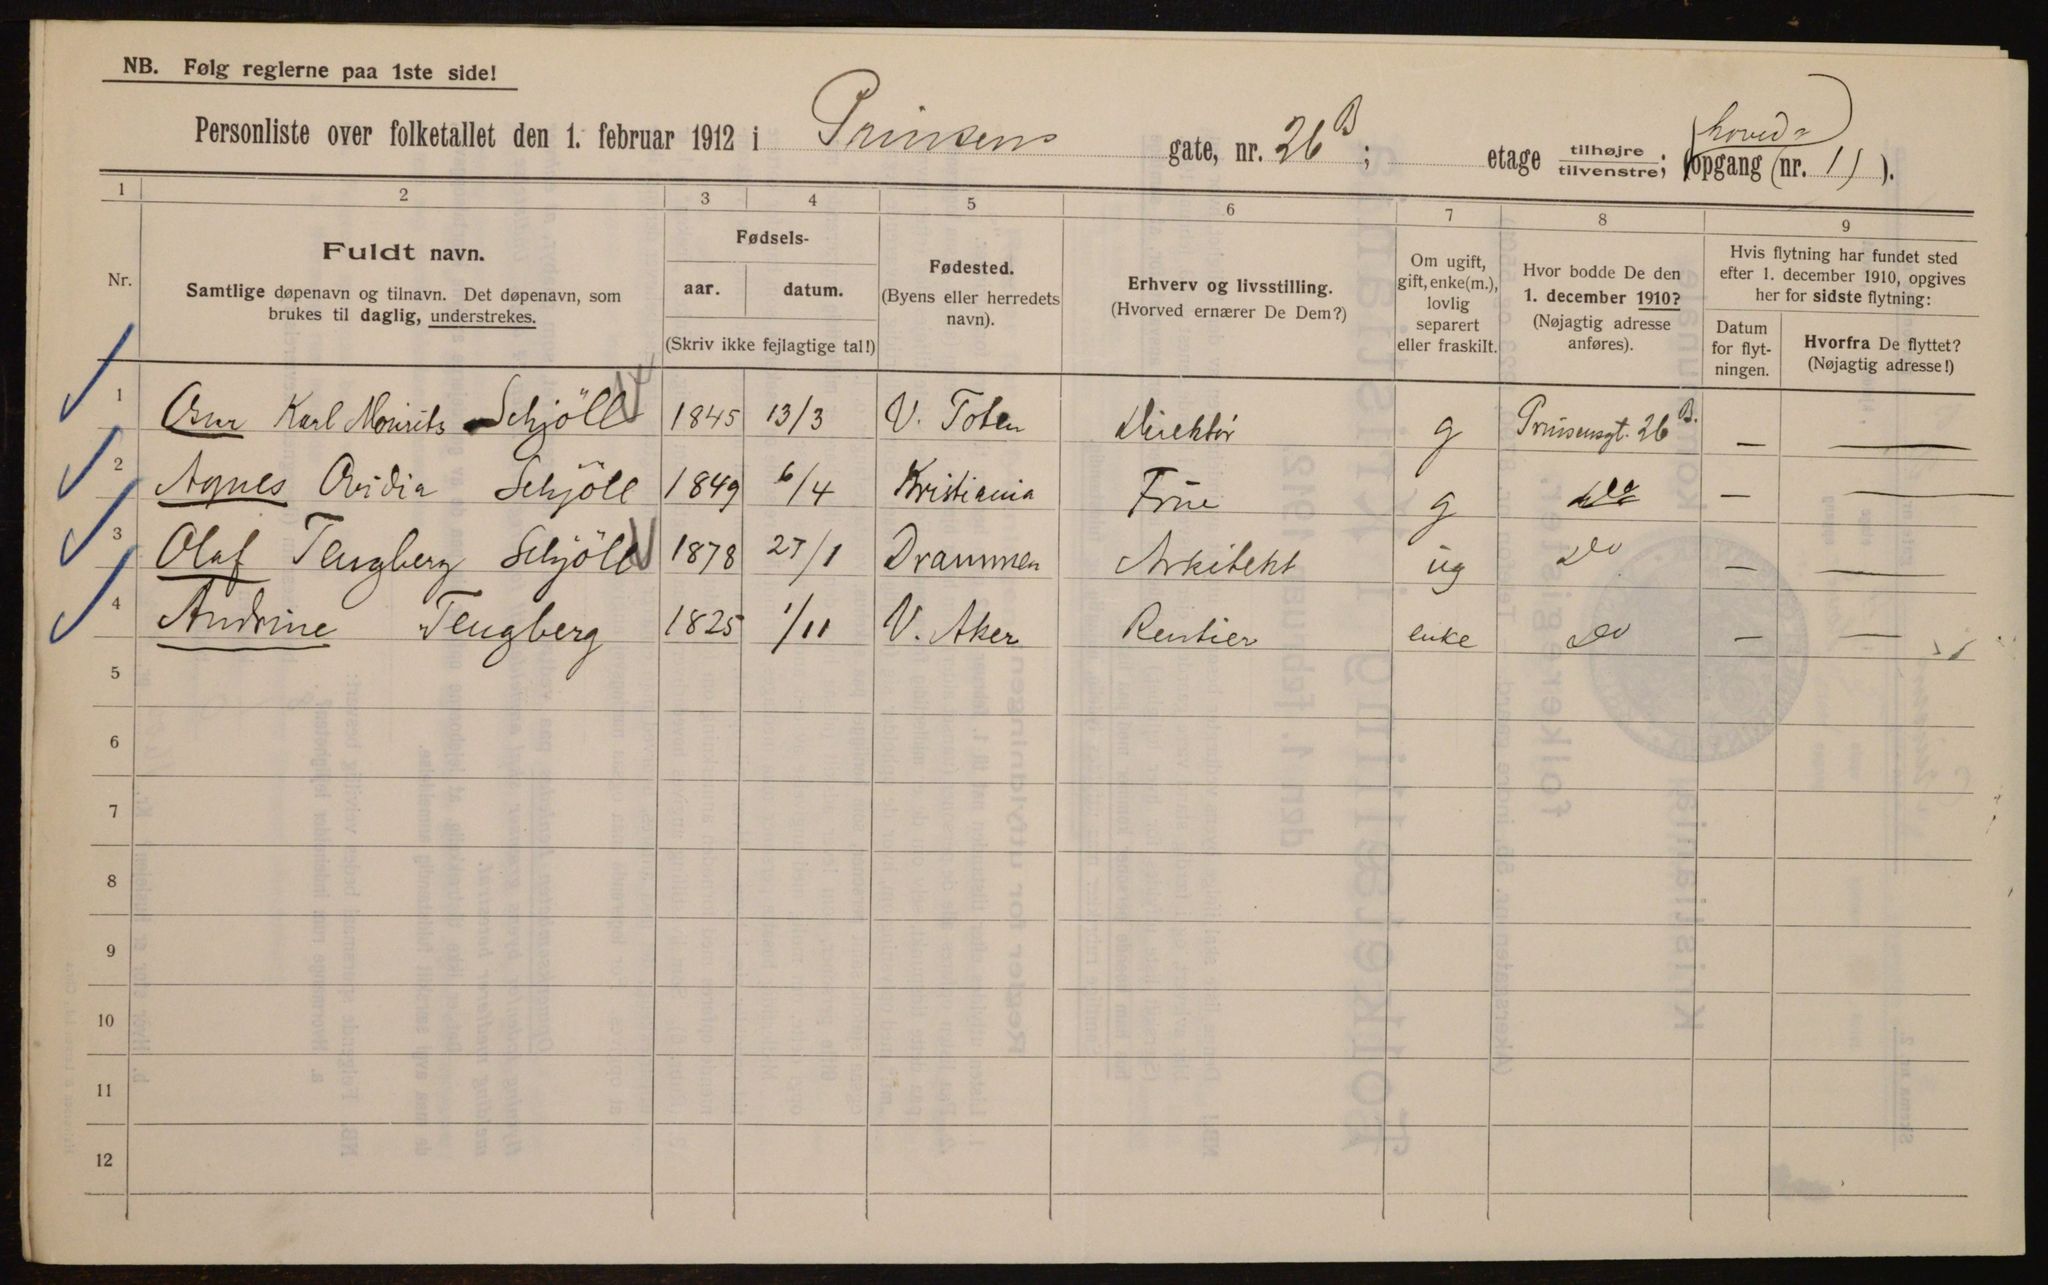 NB. Følg reglerne paa 1ste side!
Personliste over folketallet den 1. februar 1912 i Prinsens gate, nr. 26 B ; etage tilhøjre tilvenstre; (hoved= opgang (nr. 1) ).
1 2 3 4 5 6 7 8 9
Nr.
Fuldt navn.
Samtlige døpenavn og tilnavn. Det døpenavn, som
brukes til daglig, understrekes.
Fødsels-
aar. datum.
(Skriv ikke fejlagtige tal!)
Fødested.
(Byens eller herredets
navn).
Erhverv og livsstilling.
(Hvorved ernærer De Dem?)
Om ugift,
gift, enke(m.),
lovlig
separert
eller fraskilt.
Hvor bodde De den
1. december 1910?
(Nøjagtig adresse
anføres).
Hvis flytning har fundet sted
efter 1. december 1910, opgives
her for sidste flytning:
Datum
for flyt-
ningen.
Hvorfra De flyttet?
(Nøjagtig adresse!)
1 Karl Mourits Schjöll 1845 13/3 V. Toten Direktör g Prinsensgt. 26 B. — —
2 Agnes Ovidia Schjöll 1849 6/4 Kristiania Frue g do — —
3 Olaf Tengberg Schjöll 1878 27/1 Drammen Arkitekt ug Do — —
4 Andrine Tengberg 1825 1/11 V. Aker Rentier enke Do — —
5
6
7
8
9
10
11
12